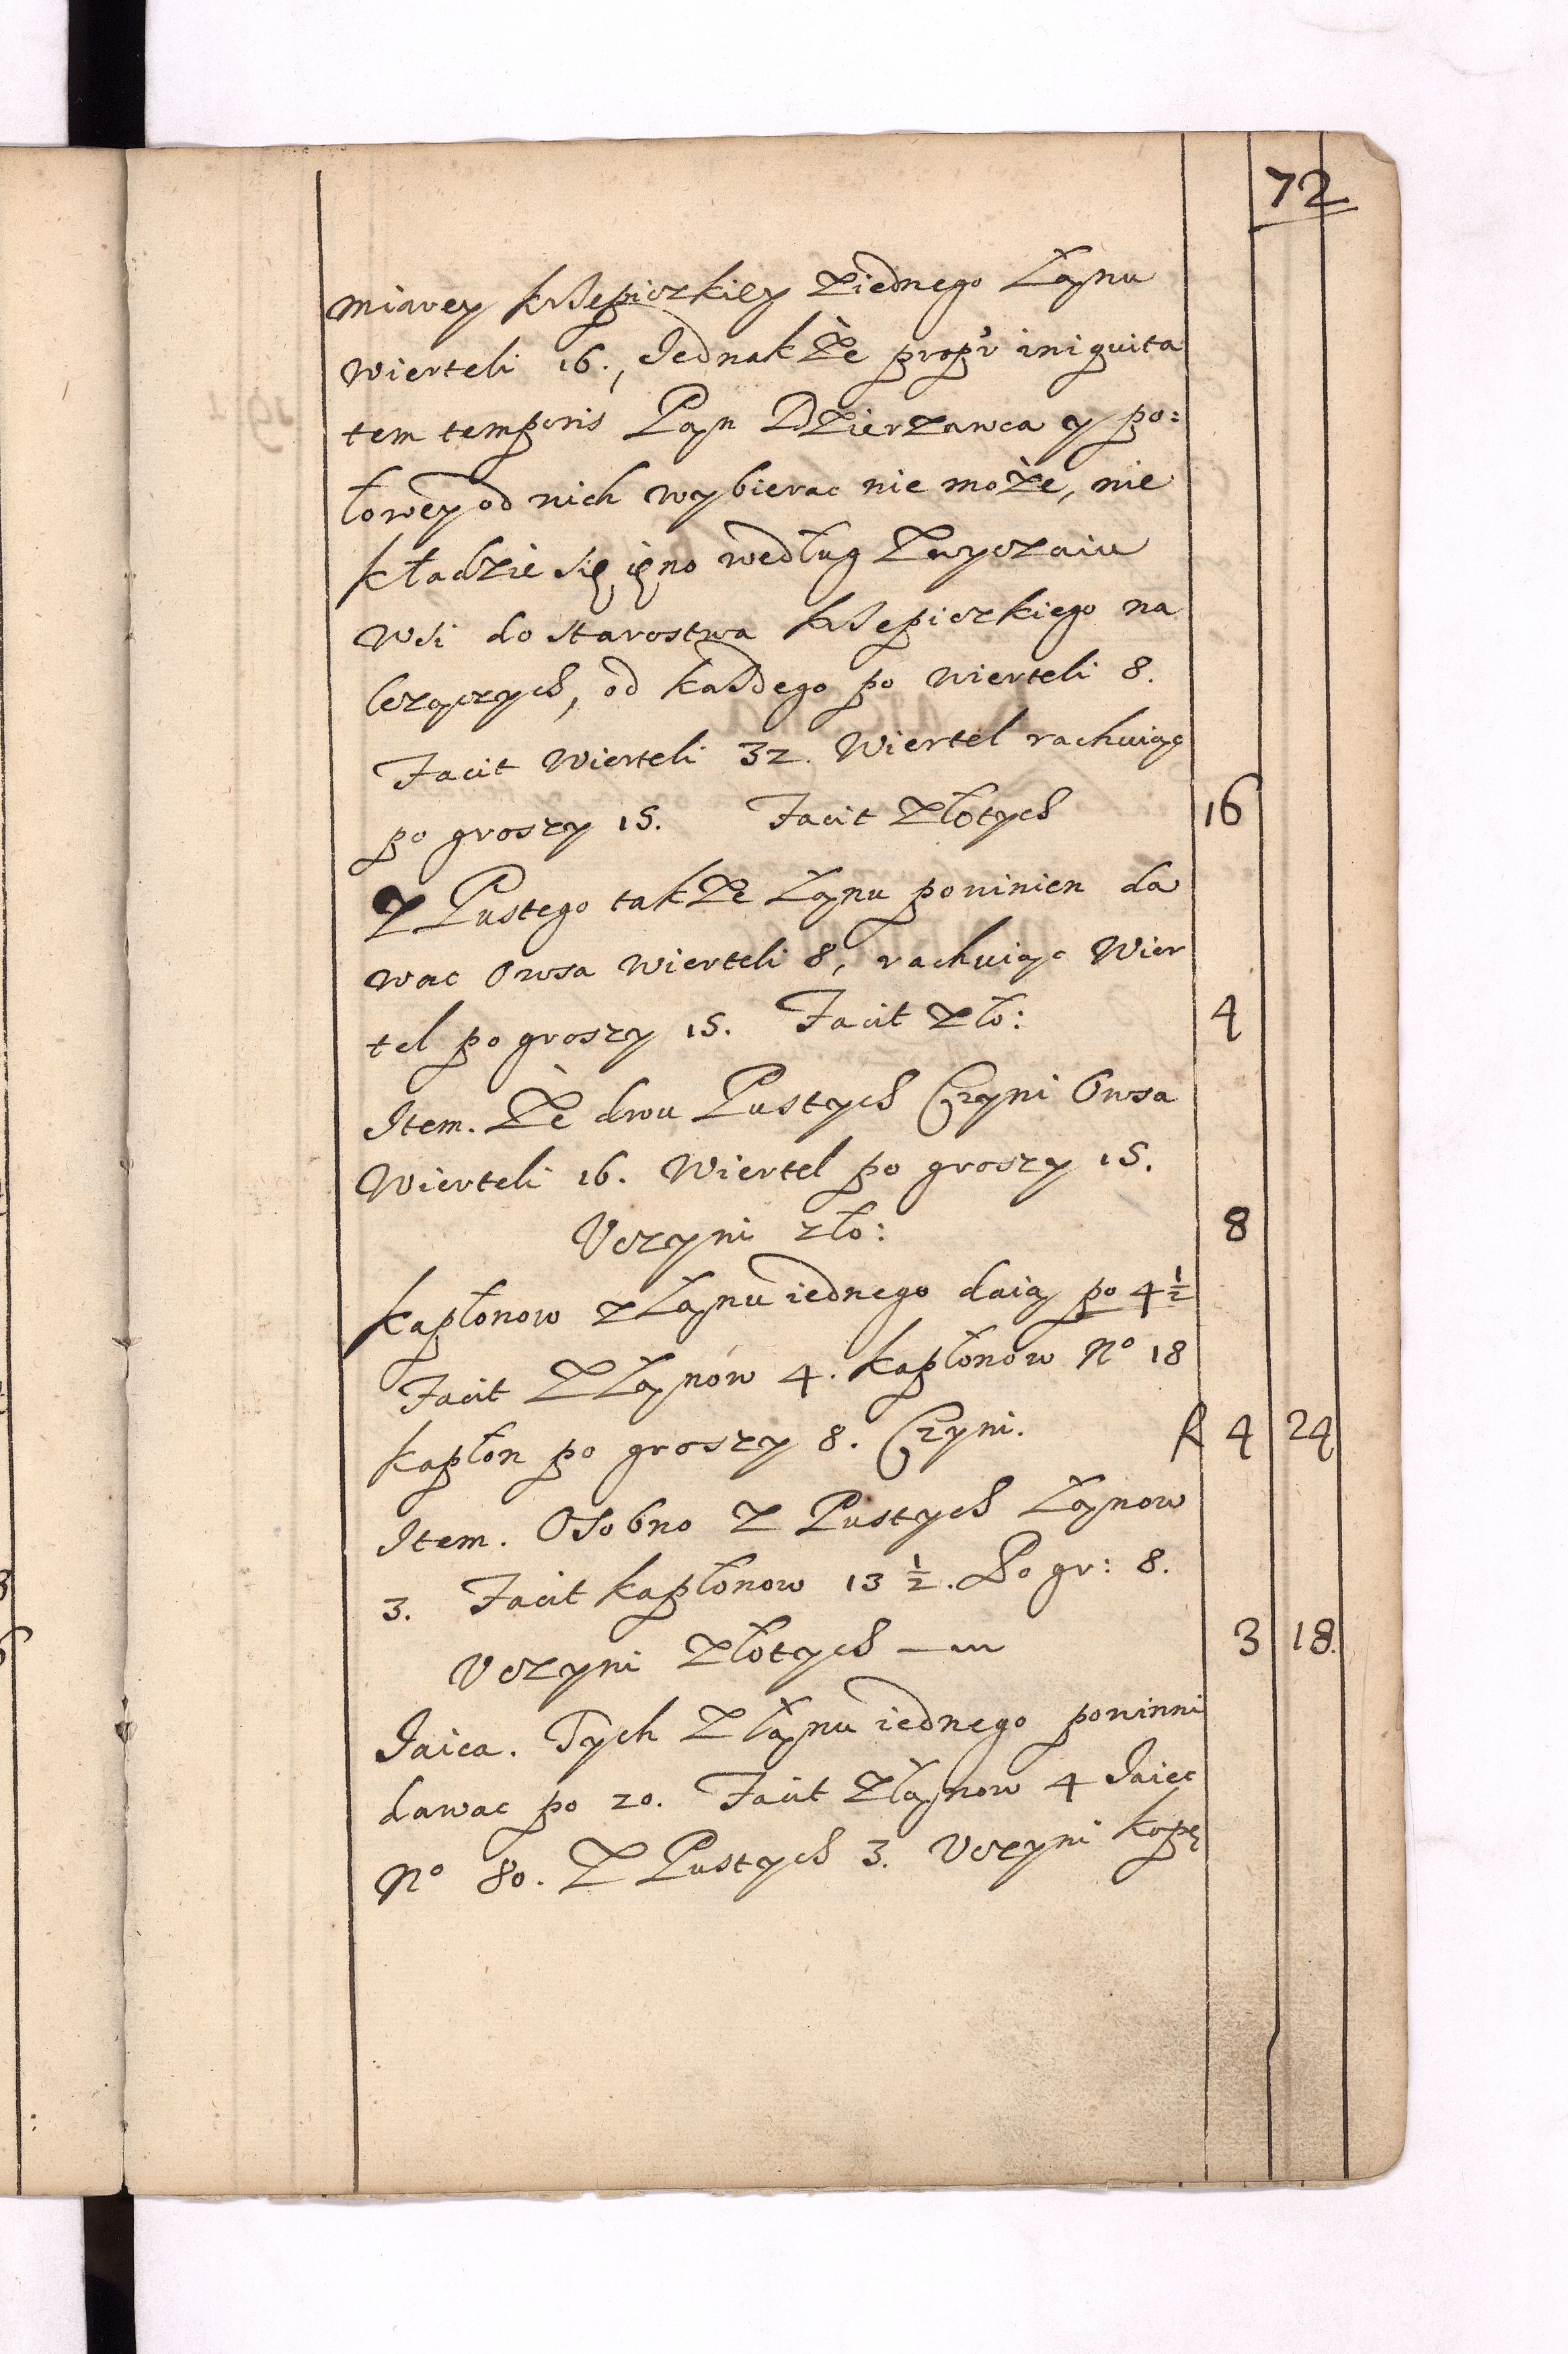 72
miarey krzepiczkiey z iednego Łanu
wierteli 16., Jednakże propr iniquita
tem temporis Pan Dzierzawca y po:
łowey od nich wybierac nie może, nie
kładzie się ięno według Zwyczaiu
wsi do starostwa krzepiczkiego na
lezączych, od każdego po wierteli 8.
Facit Wierteli 32. Wiertel rachuiąc
po groszy 15. Facit Złotych 16
Z Pustego także Łanu powinien da
wac Owsa wierteli 8, rachuiąc Wier
tel po groszy 15. Facit Zło: 4
Item. Ze dwu Pustych Czyni Owsa
Wierteli 16. Wiertel po groszy 15.
Vczyni zło: 8
kapłonow z Łanu iednego daią po 4 1/2
Facit Z Łanów 4. kapłonow No 18
kapłon po groszy 8. Czyni. R 4 24
Item. Osobno Z Pustych Łanow
3. Facit kapłonow 13 1/2. Po gr: 8.
Vczyni Złotych — 3 18.
Jaica. Tych Z łanu iednego powinni
dawac po 20. Facit Z łanow 4 Jaiec
No 80. Z Pustych 3. Vczyni kopę